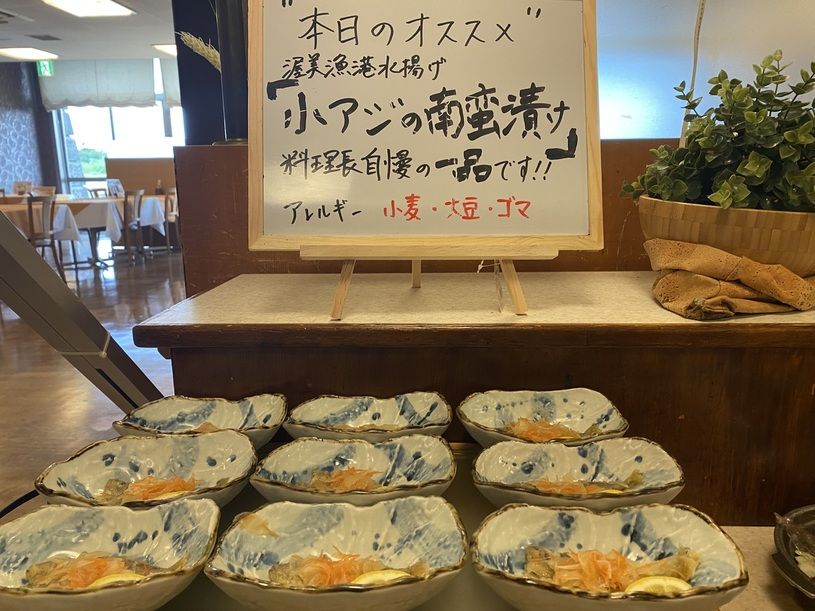 "本日のオススメ"
渥美漁港水揚げ
「小アジの南蛮漬け」
料理長自慢の一品です!!
アレルギー 小麦・大豆・ゴマ